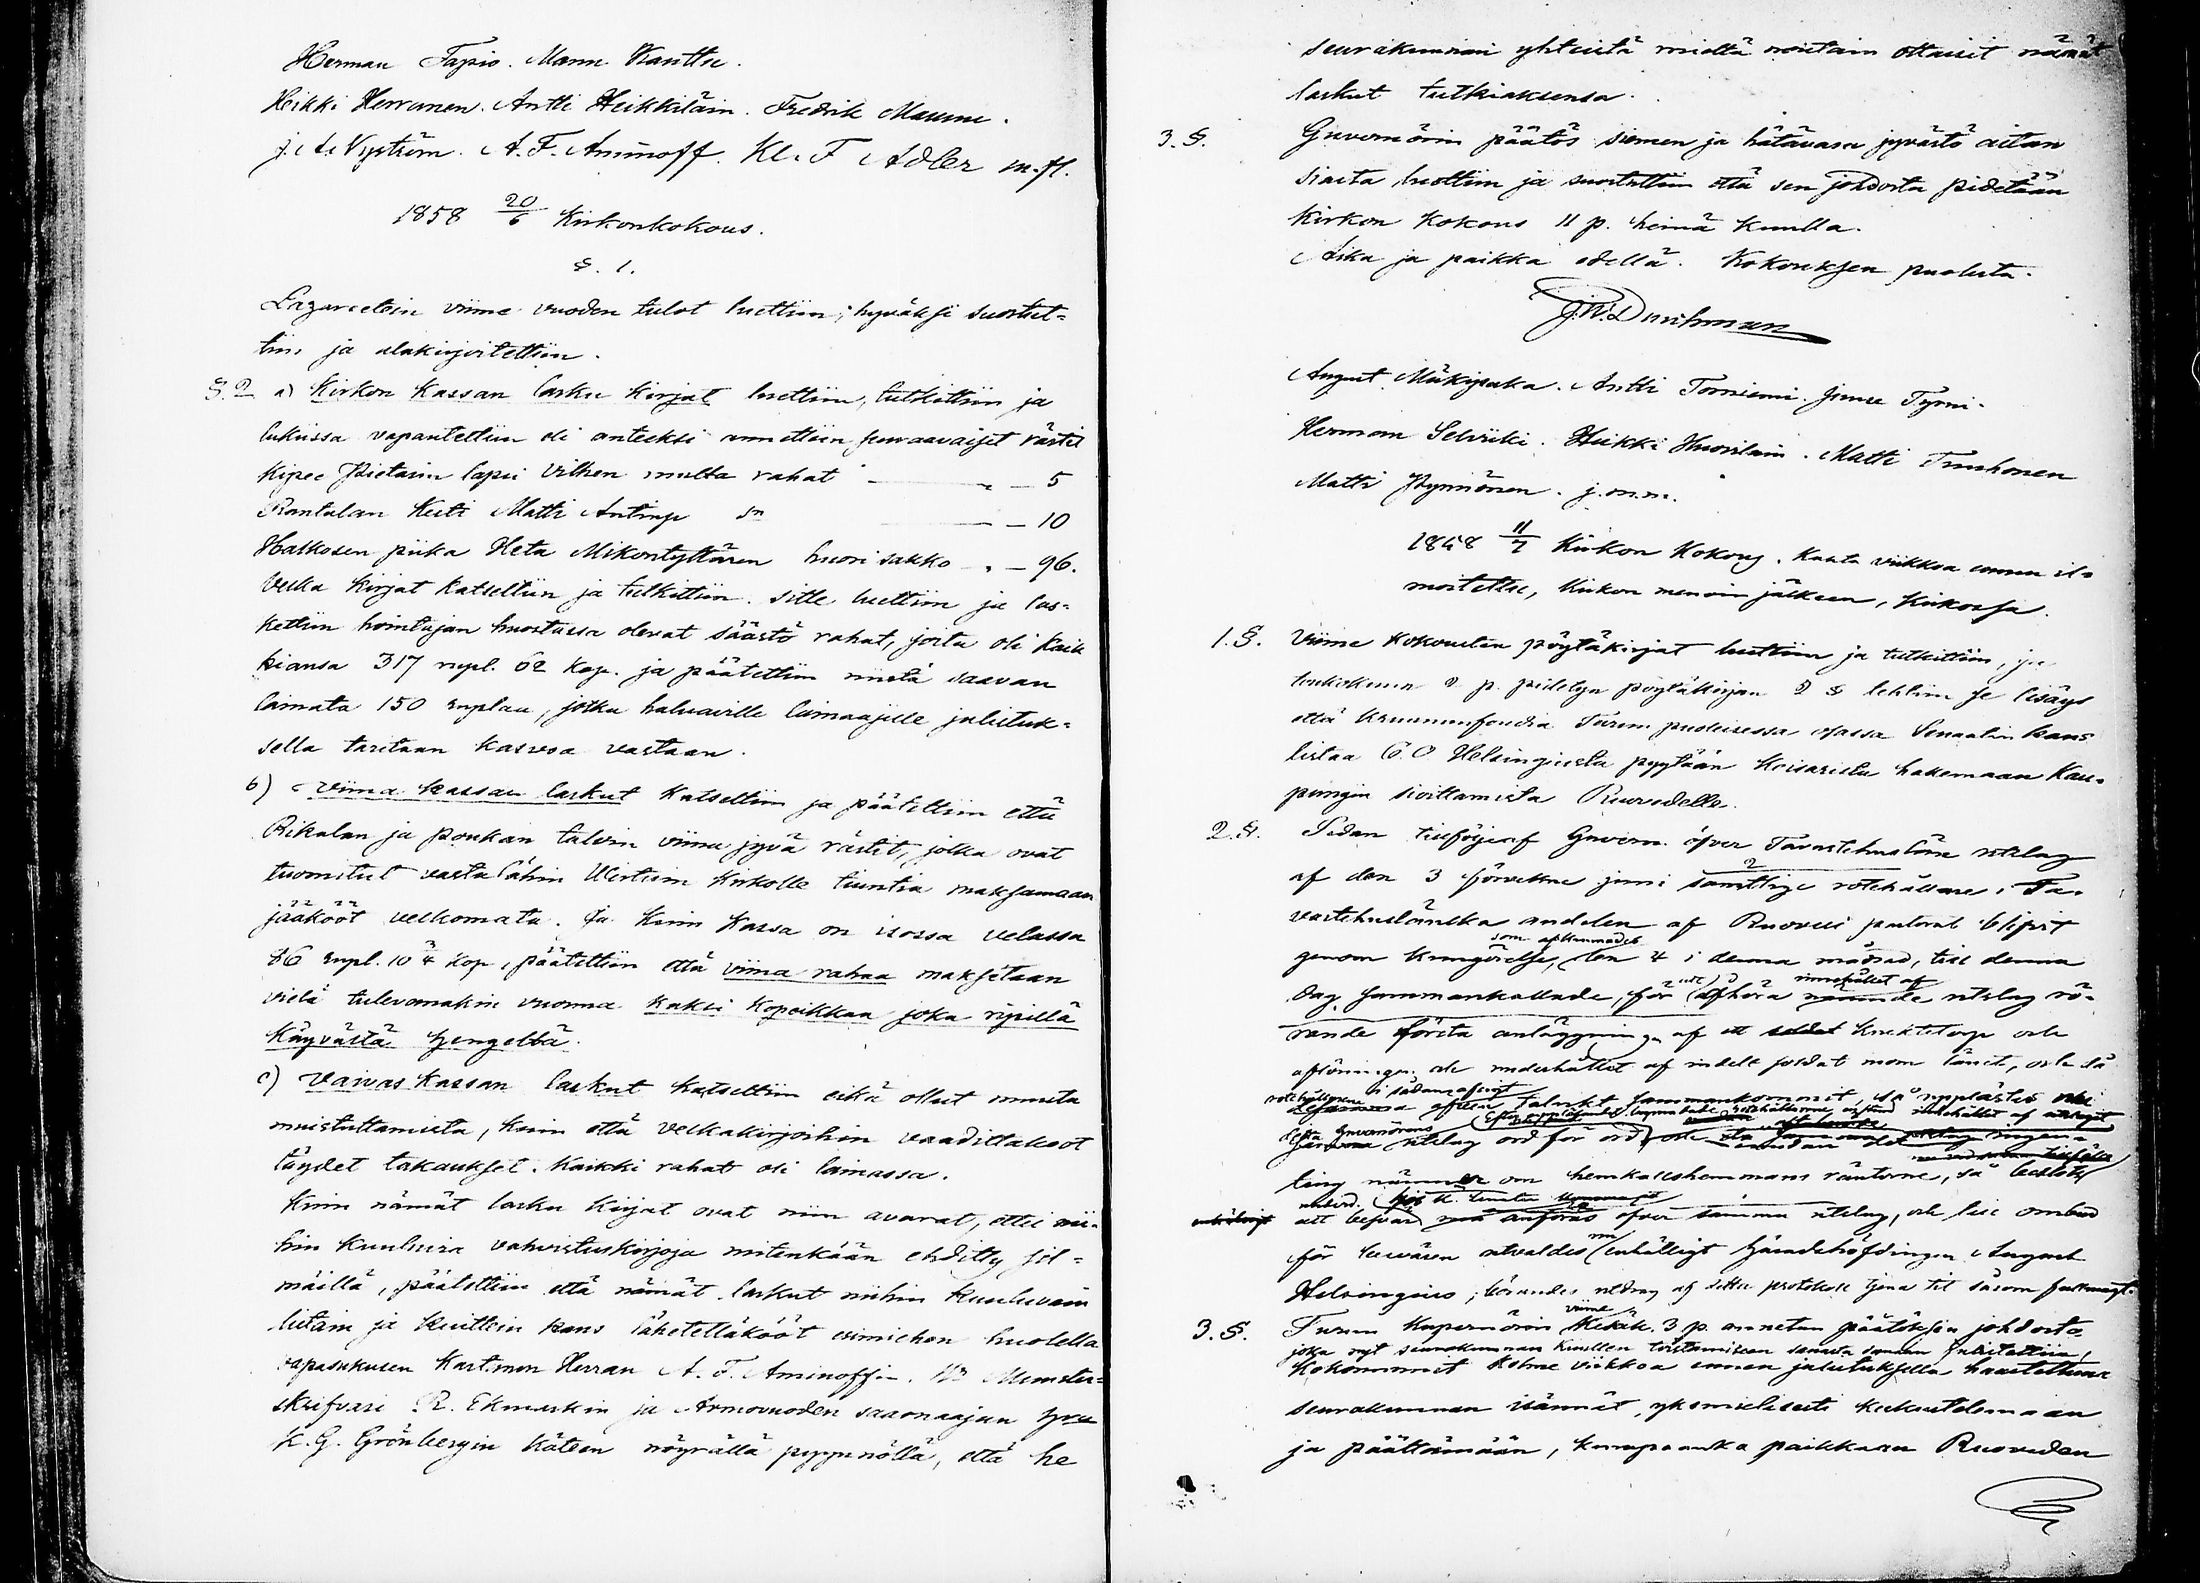 Herman Tapio. Manu Kanttu.
Heikki Herranen. Antti Heikkiläin. Fredrik Maunu.
J. A. Nyström. A. F. Aminoff. Kl. F Adler m.fl.
1858 20/6 Kirkonkokous.
§. 1.
Lazarettin viime vuoden tulot luettiin, hyväksi suostut-
tiin ja alakirjoitettiin.
§. 2 a) Kirkon Kassan lasku Kirjat luettiin, tutkittiin ja
lukiissa vapautettiin eli anteeksi annettiin seuraavaiset rästit
Kipee Pietarin lapsi Vilhen multa rahat — 5
Rantalan Kusti Matti Antinp dn — 10
Halkosen piika Heta Mikontyttären huori sakko — 96.
Velka Kirjat katseltiin ja tutkittiin. Sitte luettiin ja las-
kettiin hointajan huostassa olevat säästö rahat, joita oli Kaik
kiansa 317 rupl. 62 Kop. ja päätettiin niistä saavan
lainata 150 ruplaa, jotka haluaville lainaajille julistuk-
sella taritaan kasvoa vastaan.
b) viina kassan laskut Katseltiin ja päätettiin että
Rikalan ja Poukan talvin viina jyvä rästit, jotka ovat
tuomitut vasta lähin Wirtoin Kirkolle tiuntia maksamaan
jääkööt velkomata. Ja Kuin Kassa on isossa velassa
86 rupl. 10 3/4 Kop, päätettiin että viina rahaa maksetaan
vielä tulevanakin vuonna kaksi Kopeikkaa joka ripillä
Käyvästä hengeltä.
c) Vaivas Kassan laskut Katseltiin eikä ollut muuta
muistuttamista, kuin että velkakirjoihin vaadittakoot
täydet takaukset. Kaikki rahat oli lainassa.
Kuin nämät lasku Kirjat ovat niin avarat, ettei nii-
hin kuuluvia vahvistuskirjoja mitenkään ehditty sil-
mäillä, päätettiin että nämät laskut niihin kuuluvain
liitäin ja kuittein kans lähetettäkööt esimiehen huolella
vapasukusen Kartimon Herran A. F. Aminoffin. Hr Munster-
skrifvare R. Ekmarkin ja Armovuoden saarnaajan Hra
K. G. Grönbergin Käteen nöyrällä pyynnöllä, että he
seurakunnan yhteistä mieltä noutain ottaisit nämät
laskut tutkiaksensa.
3. §. Guvernörin päätös siemen ja hätävara jyvästö aitan
siasta luettiin ja suostuttiin että sen johdosta pidetään
Kirkon Kokous 11 p. heinä Kuulla.
Aika ja paikka edellä. Kokouksen puolesta.
J. W. Durchman
August Mäkysaka. Antti Torniemi. Jusse Tyrni.
Herman Selviki. Heikki Huovilain. Matti Turhonen
Matti Pynnönen. j.m.m.
1858 11/7 Kirkon Kokous. Kaxta viikkoa ennen il-
moitettu, Kirkon menoin jälkeen, Kirkossa.
1. §. Viime Kokousten pöytäkirjat luettiin ja tutkittiin, ja
toukokuun 2 p. pidetyn pöytäkirjan 2 § tehtiin se lisäys
että Kruununfoudia Turun puoleisessa osassa Senaatin kans-
listaa Helsingistä pyytään Keisarilta hakemaan Kau-
pungin sioittamista Ruovedelle.
2. §. Sedan tillfölje af Guvern. öfver Tavastehuslän utslag
af den 3 förvekne juni samtlige rotehållare i Ta-
vastehusländska andelen af Ruovesi pastorat blifvit
genom Kungörelse, som afkunnades den 4 i denna månad, till denna
dag sammankallade, för att afhöra innehållet af nämnde utslag rö-
rande första anläggningen af Knektetorp och
aflöningen och underhållet af indelt soldat inom länet, och då
rotehållarne i sådant afseende talrikt sammankommit, så upplästes
detta Guvernörens utslag ord för ord,
om hemkallshemmans räntorne, så beslöts
att besvär öfver samma utslag, och till ombud
för besvären utvaldes nu enhälligt häradshöfdingen August
Helsingius, börandes utdrag af detta protokoll tjena till såsom fullmagt.
3. §. Turun Kupernörin viime Kesäk. 3 p. annetun päätöksen johdosta
joka nyt seurakunnan kuullen toistamiseen sanasta sanaan julistettiin,
Kokoonnuit kolme viikkoa ennen julistuksella haastettuna
seurakunnan isännät, yksmielisesti keskustelemaan
ja päättämään, kumpaanka paikkaan Ruoveden